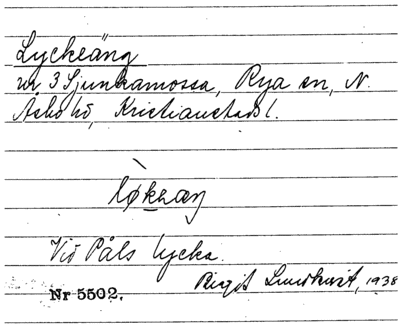 Lyckeäng
nr 3 Sjunkamossa, Rya sn, N.
Åsbo hd, Kristianstads l.
Vid Påls lycka.
Birgit Lundkvist, 1938
Nr 5502.